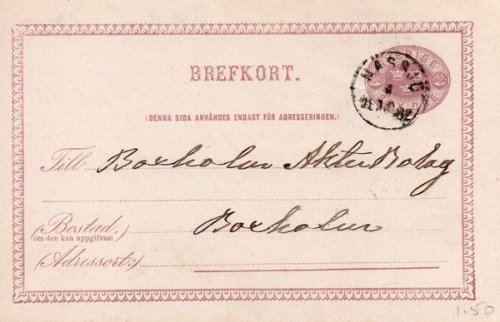 BREFKORT.
NÄSSJÖ
(DENNA SIDA ANVÄNDES ENDAST FÖR ADRESSERINGEN.)
Till Boxholm AktieBolag
(Bostad,
om den kan uppgifvas:)
Boxholm
(Adressort:)
1.50